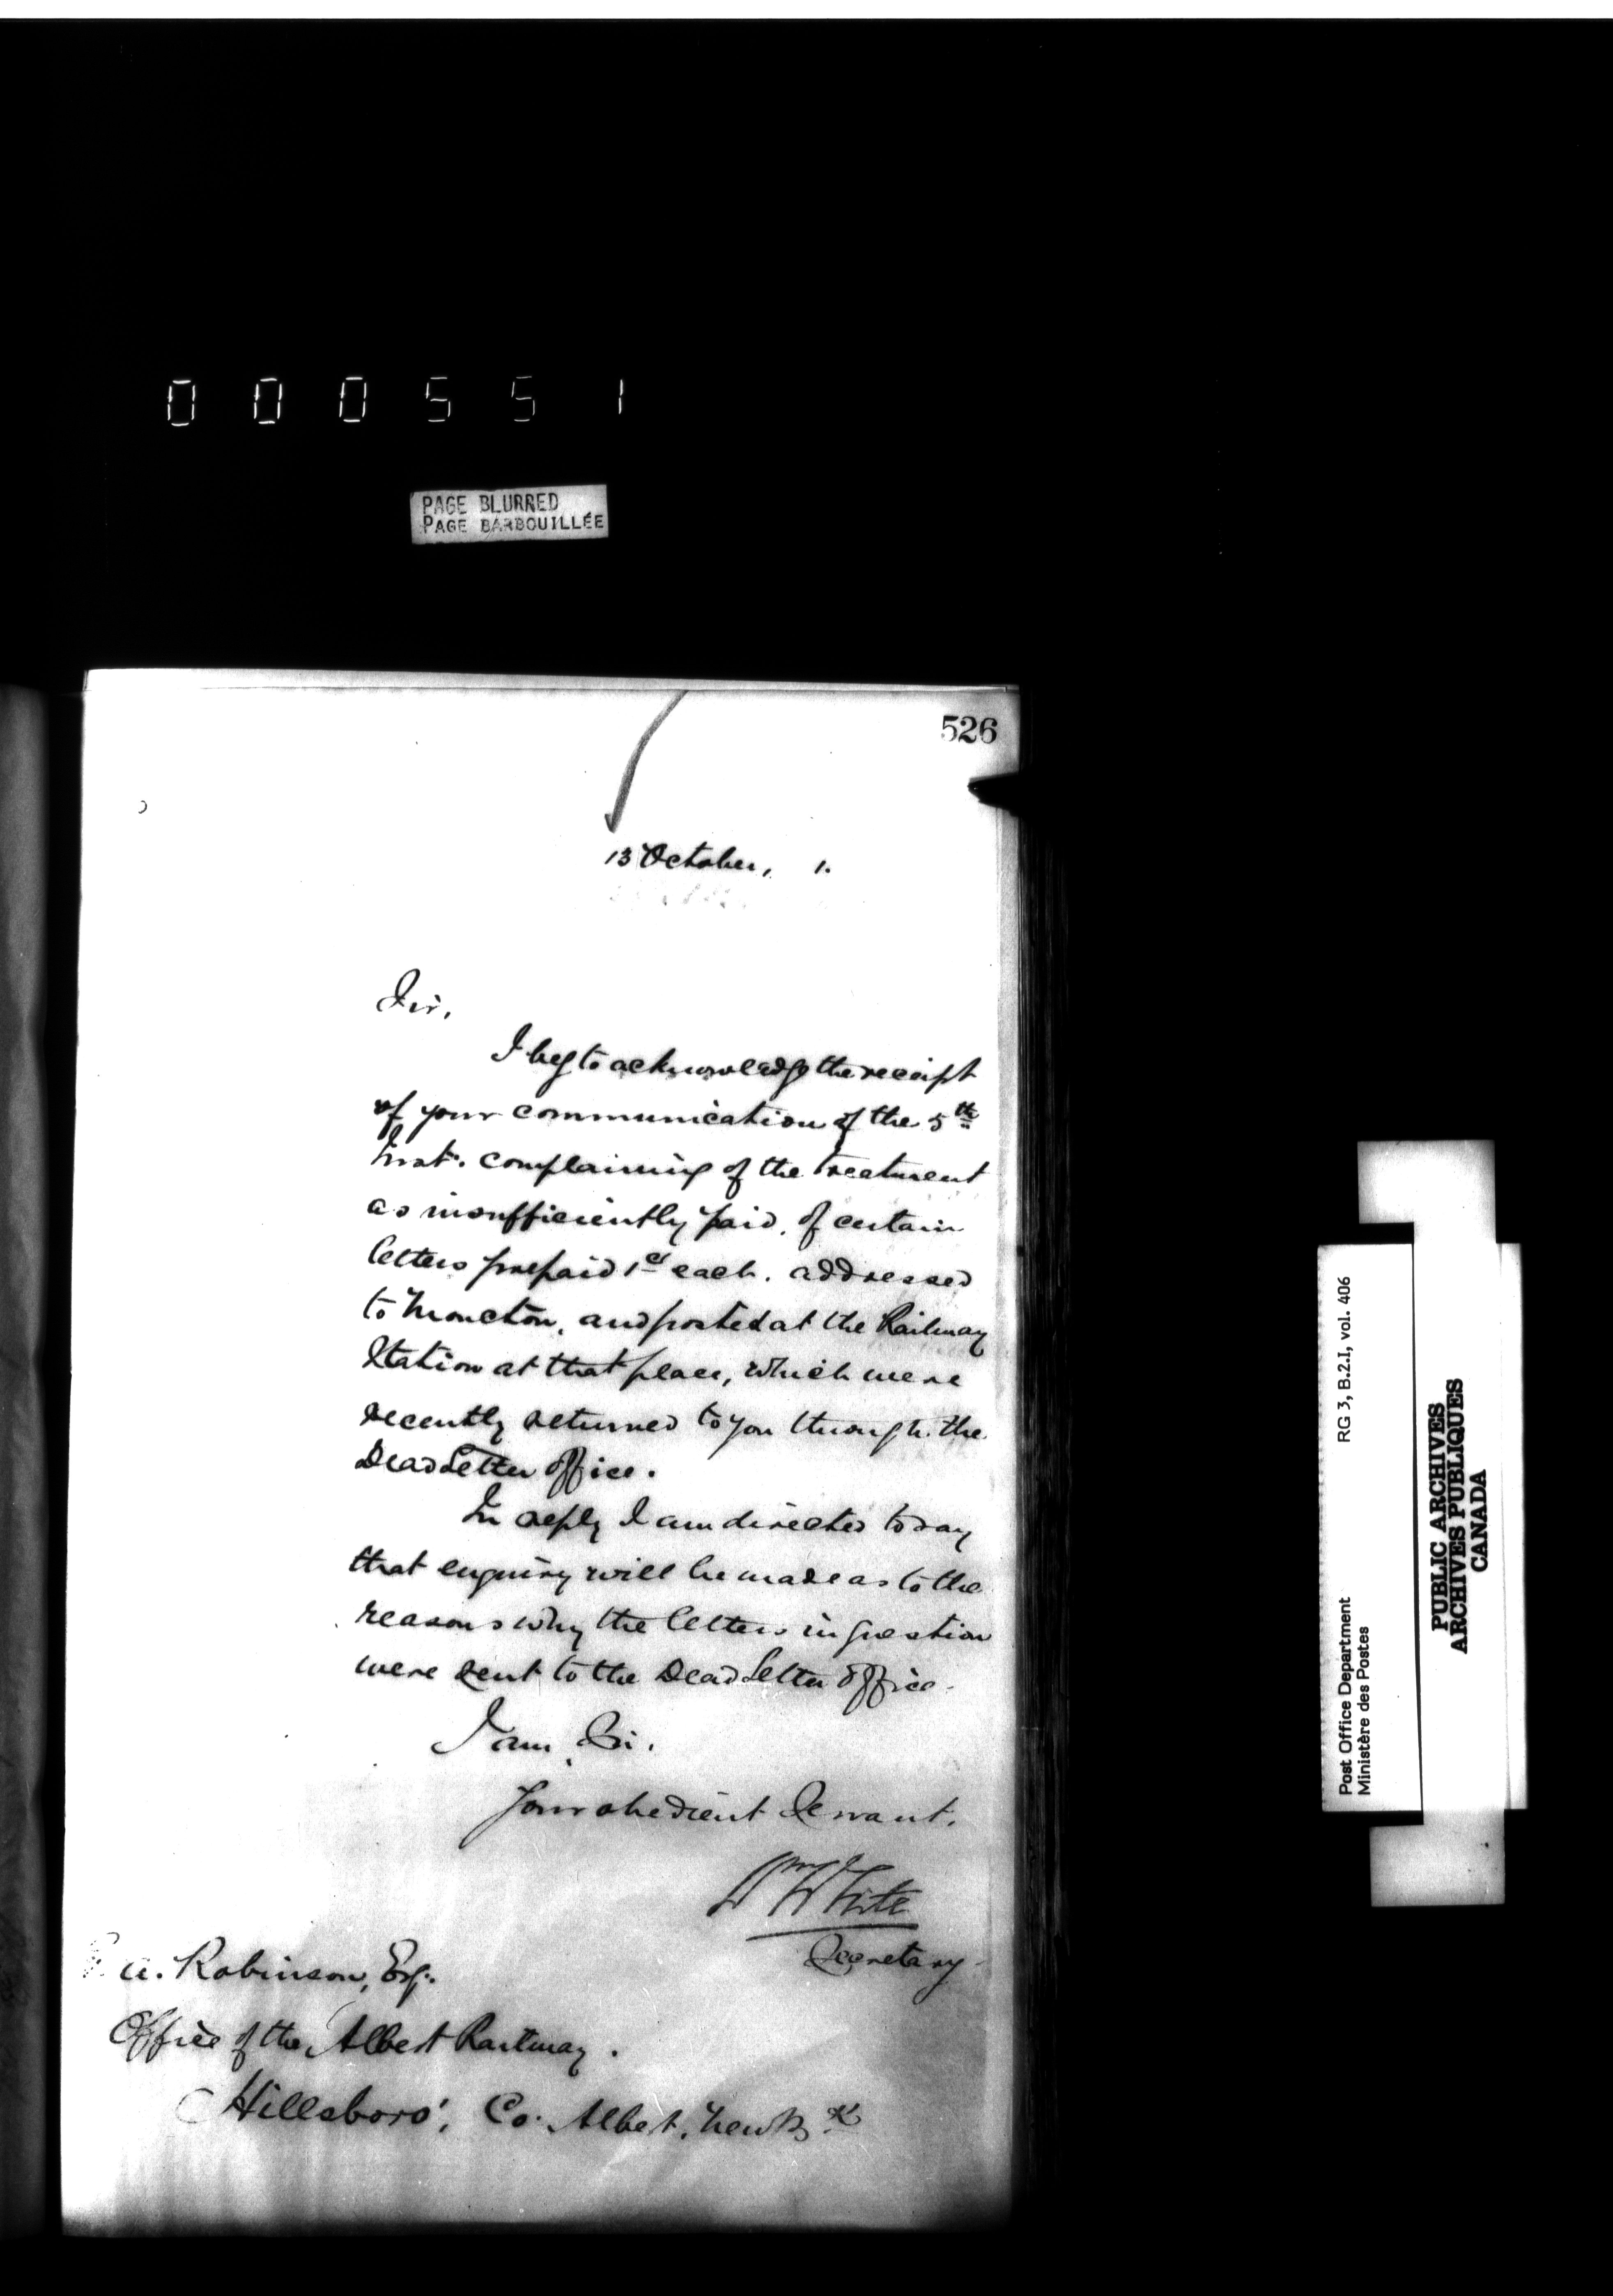 000551
PAGE BLURRED
PAGE BARBOUILLÉE
526
13 October, 1.
Sir,
I beg to acknowledge the receipt
of your communication of the 5th
Inst. complaining of the treatment
as insufficiently paid, of certain
letters prepaid 1c each, addressed
to Moncton, and posted at the Railway
Station at that place, which were
recently returned to you through the
Dead Letter Office.
In reply I am directed to say
that enquiry will be made as to the
reasons why the letters in question
were sent to the Dead Letter Office.
I am, Sir.
Your obedient Servant.
Wm White
Secretary
A. Robinson, Esq.
Office of the Albert Railway.
Hillsboro', Co. Albert, New Bk
Post Office Department RG 3, B.2.I, vol. 406
Ministère des Postes
PUBLIC ARCHIVES
ARCHIVES PUBLIQUES
CANADA